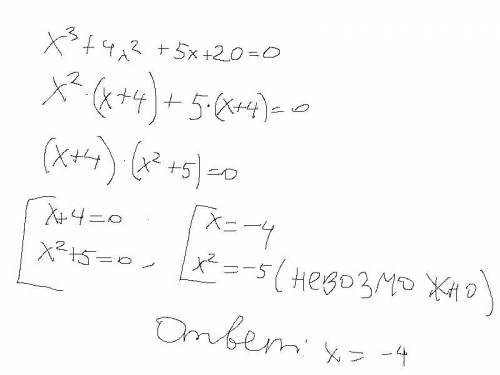 x³+4x²+5x+20=0
x²·(x+4)+5·(x+4)=0
(x+4)·(x²+5)=0
[x+4=0 [x=-4
[x²+5=0, [x²=-5 (невозможно)
Ответ: x=-4